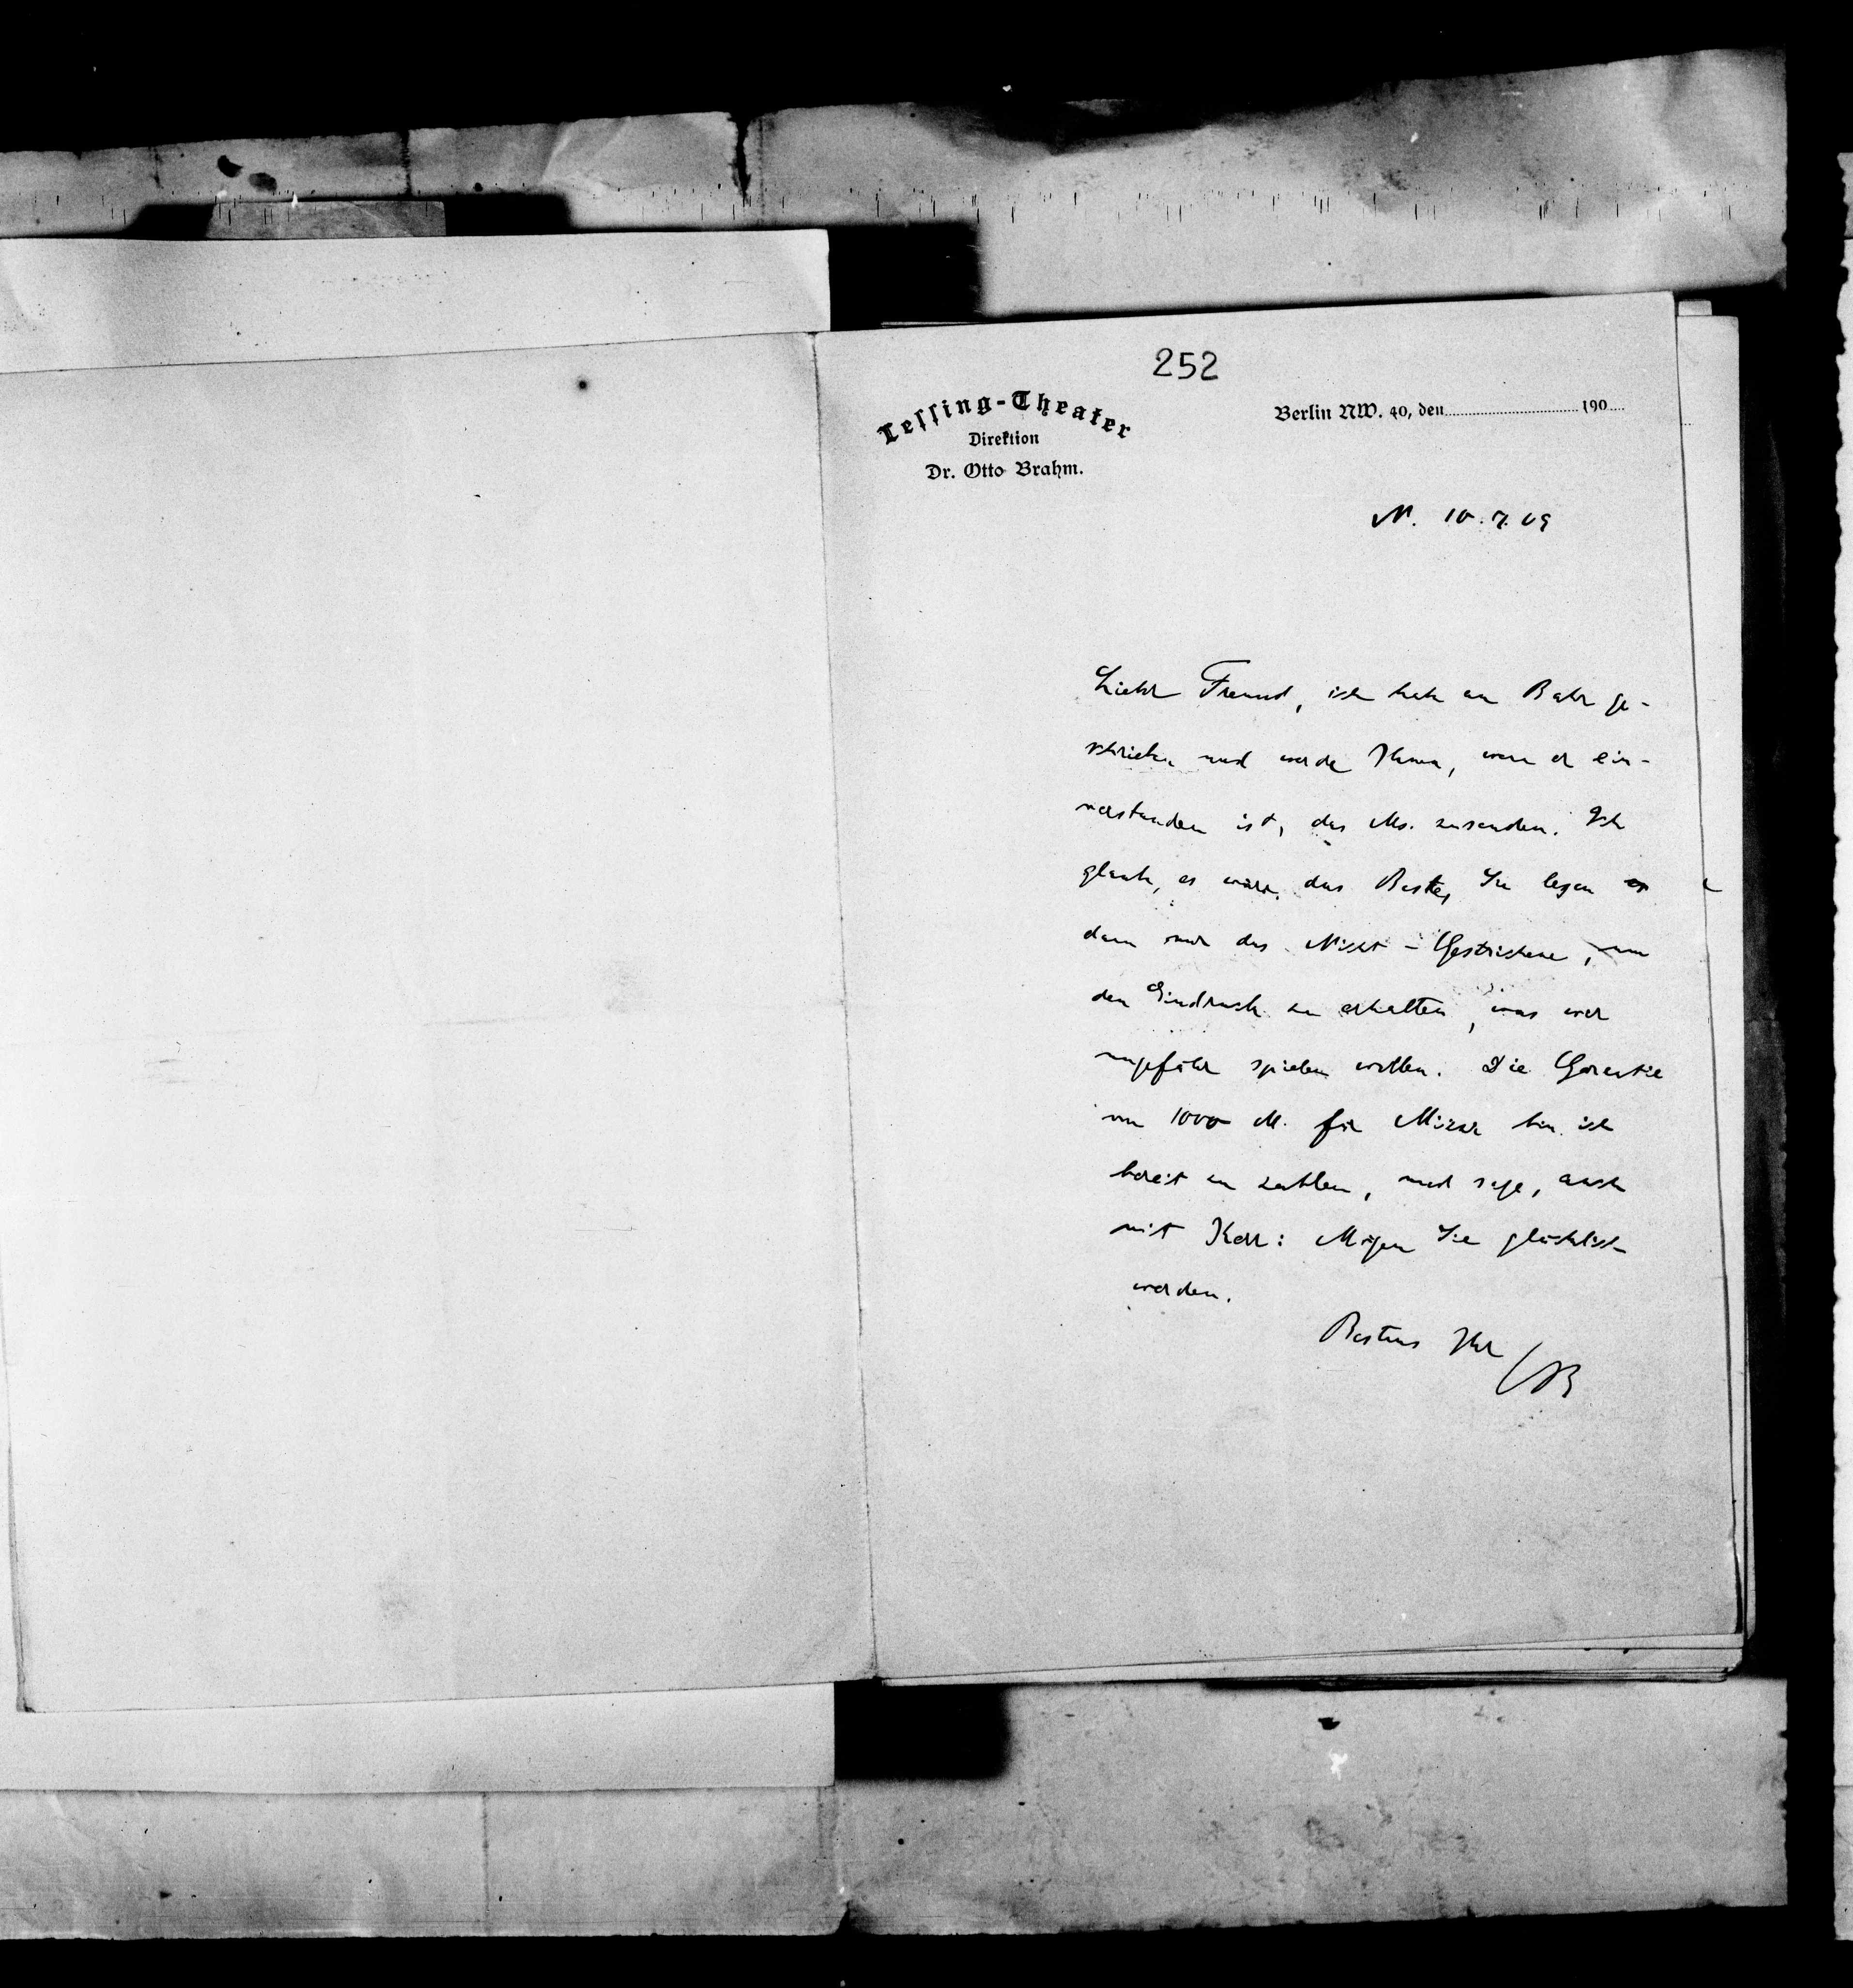 252
Lessing-Theater
Direktion
Dr. Otto Brahm.
Berlin NW. 40, den 190
N. 10.7.09
Lieber Freund, ich habe an Bahr ge-
schrieben und werde Ihnen, wenn er ein-
verstanden ist, das Ms. zusenden. Ich
glaube, es wäre das Beste, Sie lesen
dann nur das Nicht-Gestrichene, um
den Eindruck zu erhalten, was wir
ungefähr spielen wollen. Die Garantie
von 1000 M. für bin ich
bereit zu zahlen, und sage, auch
mit Kerr: Mögen Sie glücklich
werden.
Bestens Ihr
OB